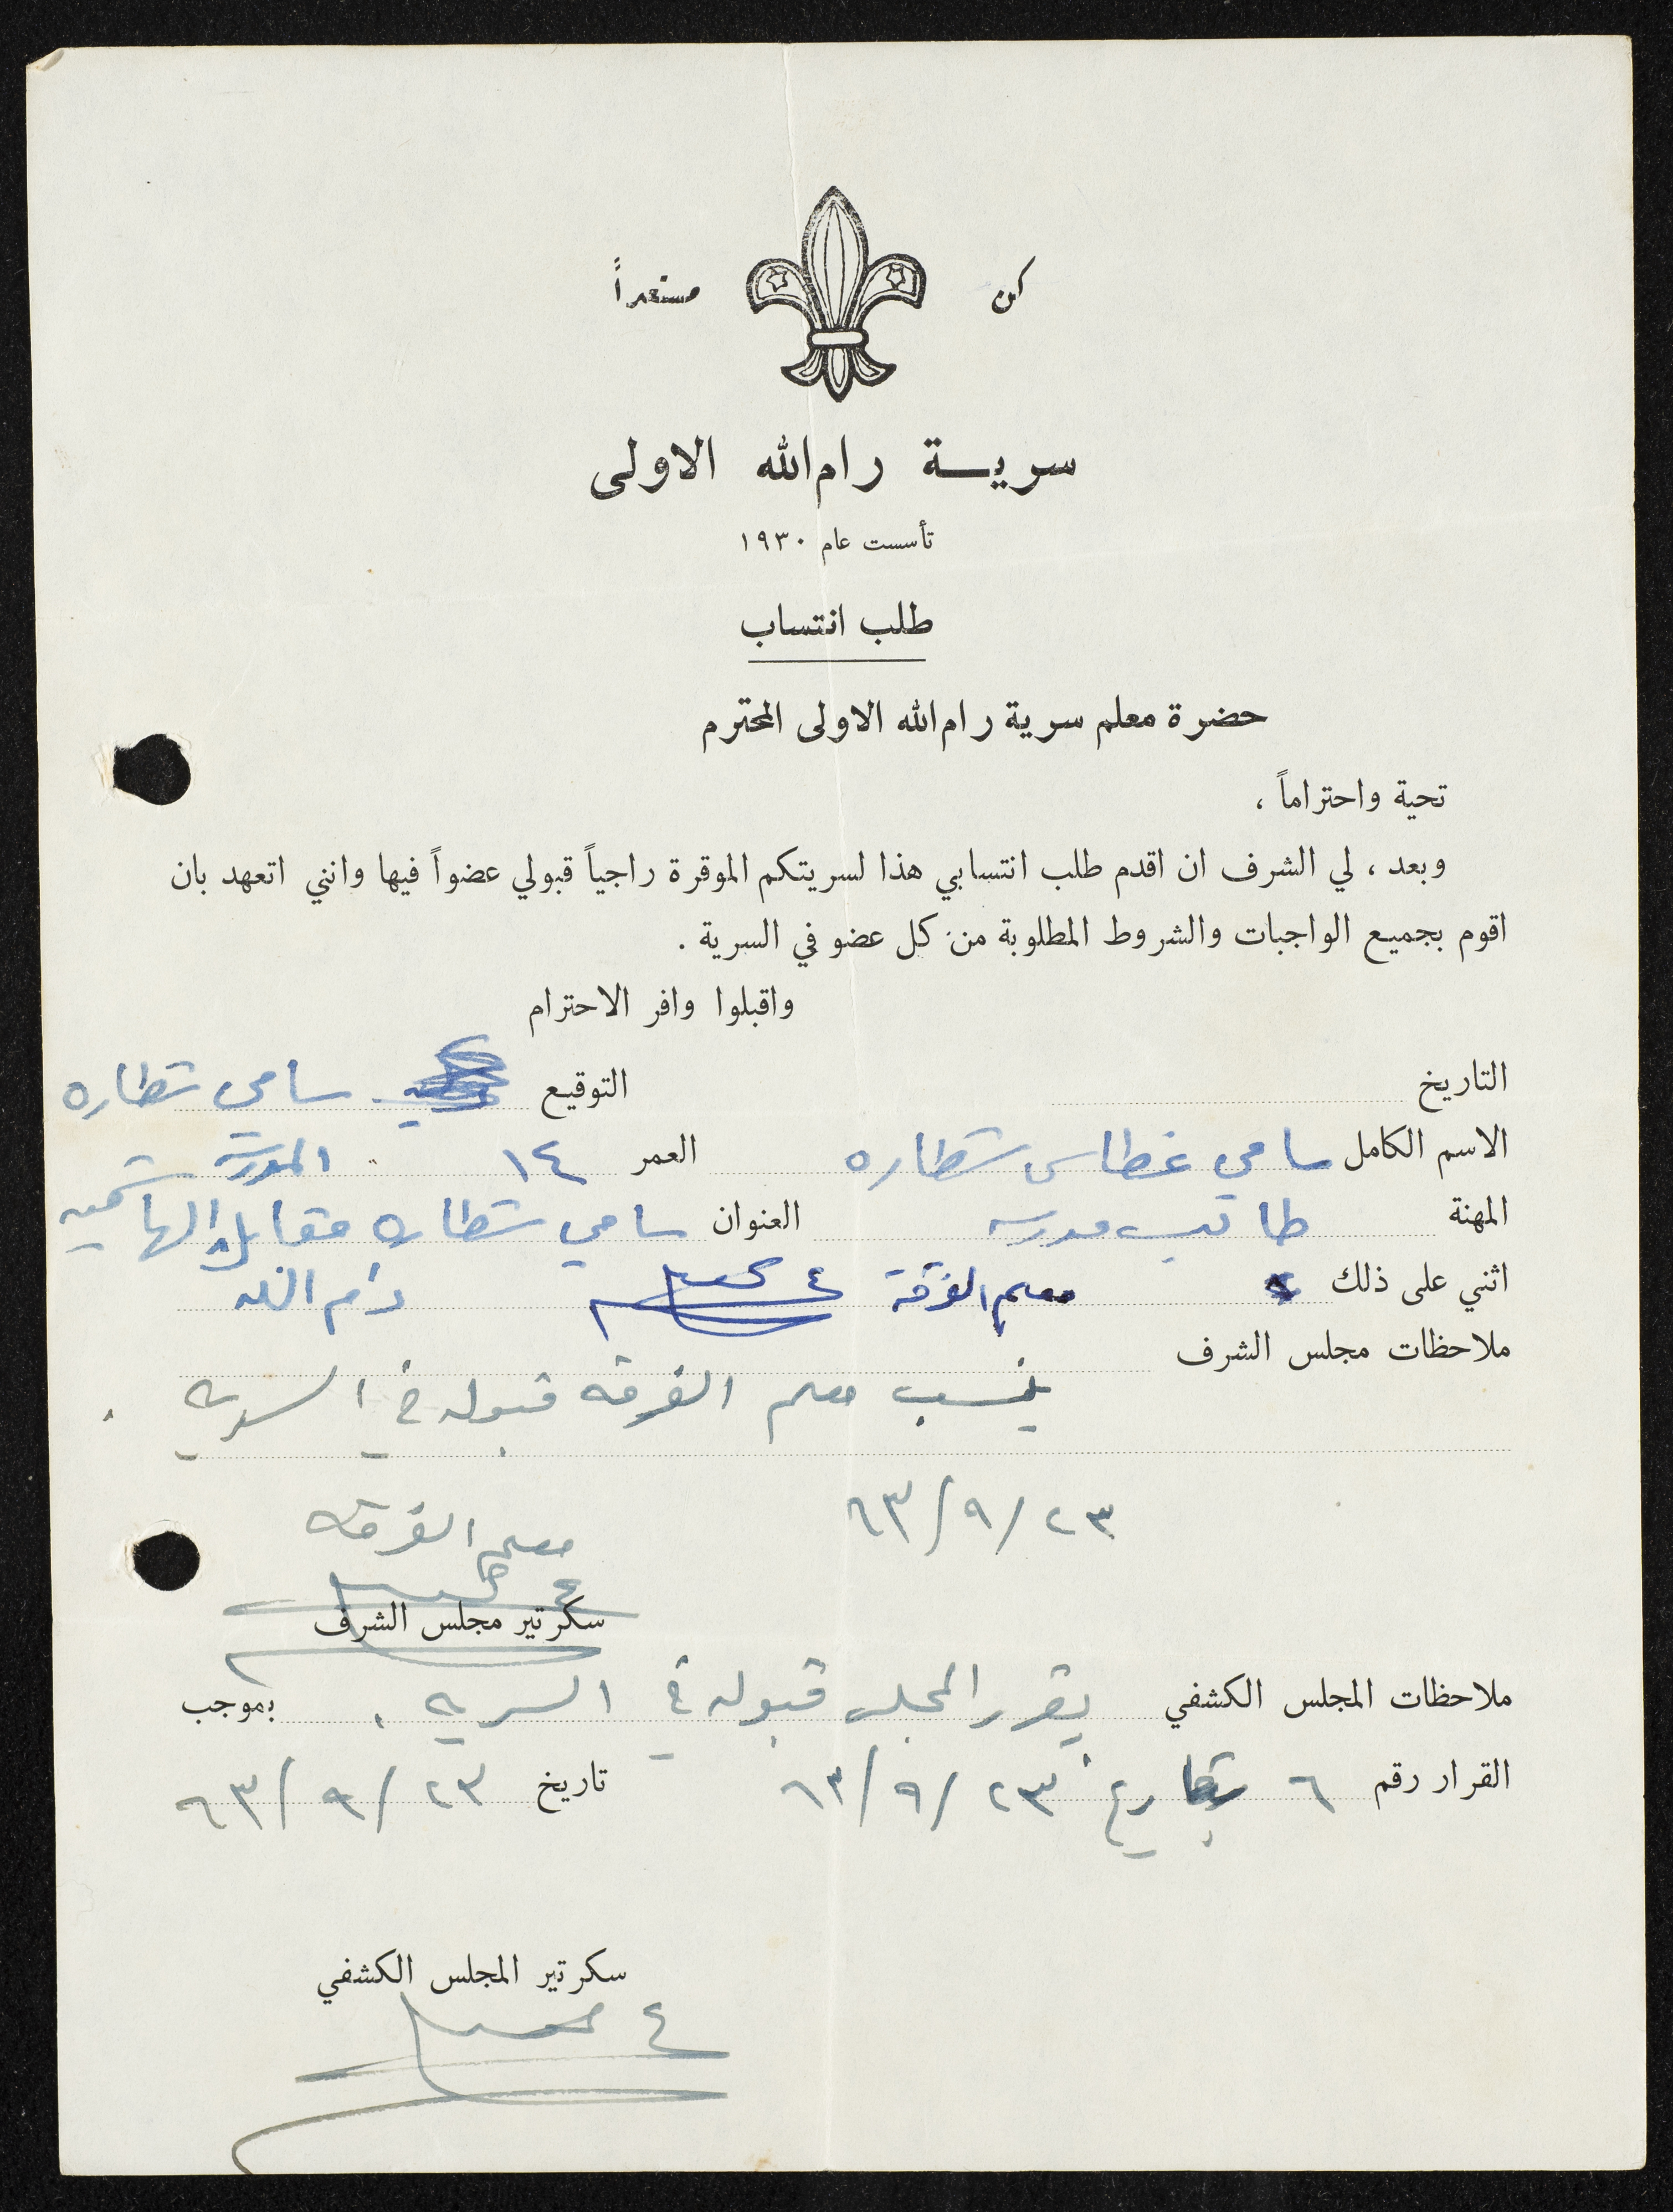 كن مستعداً
سرية رام الله الاولى
تأسست عام ١٩٣٠
طلب انتساب
حضرة معلم سرية رام الله الاولى المحترم
تحية واحتراماً ،
وبعد ، لي الشرف ان اقدم طلب انتسابي هذا لسريتكم الموقرة راجياً قبولي عضواً فيها وانني اتعهد بان
اقوم بجميع الواجبات والشروط المطلوبة من كل عضو في السرية .
واقبلوا وافر الاحترام
التاريخ التوقيع سامي شطاره
الاسم الكامل سامي غطاس شطاره العمر ١٤
المهنة طالب مدرسه العنوان سامي شطاره مقابل المدرسة الهاشميه
رام الله
اثني على ذلك معلم الفرقة
ملاحظات مجلس الشرف
ينسب معلم الفرقه قبوله في السريه .
٢٣/٩/٦٣
معلم الفرقه
سكرتير مجلس الشرف
ملاحظات المجلس الكشفي يقرر المجلس قبوله في السريه . بموجب
القرار رقم ٦ بتاريخ ٢٣/٩/٦٣ تاريخ ٢٣/٩/٦٣
سكرتير المجلس الكشفي